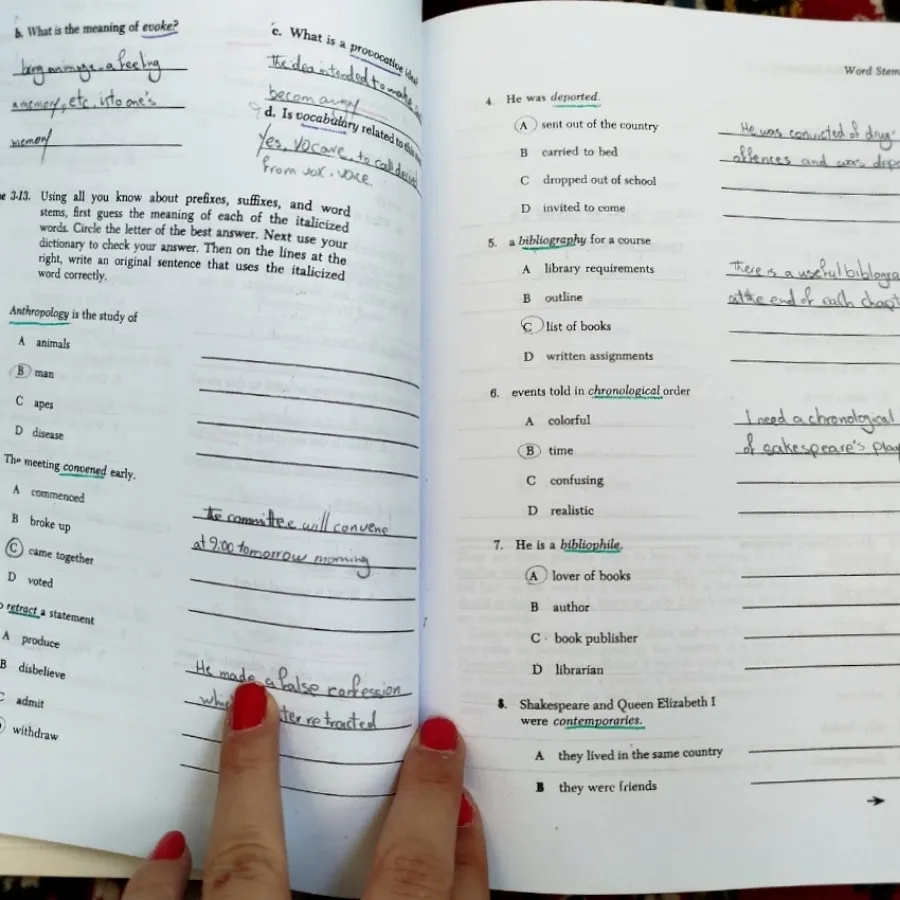 b. What is the meaning of evoke?
bring an image, a feeling
a memory, etc, into one's
memory
c. What is a provocative
The idea intended to make
becom angry
d. Is vocabulary related to this
Yes, vocare, to call
From vox, voice
3-13. Using all you know about prefixes, suffixes, and word
stems, first guess the meaning of each of the italicized
words. Circle the letter of the best answer. Next use your
dictionary to check your answer. Then on the lines at the
right, write an original sentence that uses the italicized
word correctly.
Anthropology is the study of
A animals
B man
C apes
D disease
The meeting convened early.
A commenced
B broke up
C came together
D voted
the committee will convene
at 9:00 tomorrow morning
retract a statement
A produce
B disbelieve
C admit
withdraw
He made a false confession
retracted
Word Stem
4. He was deported.
A sent out of the country
B carried to bed
C dropped out of school
D invited to come
He was convicted of drug
offences and was
5. a bibliography for a course
A library requirements
B outline
C list of books
D written assignments
There is a useful
at the end of each
6. events told in chronological order
A colorful
B time
C confusing
D realistic
I need a chronological
of sakespeare's
7. He is a bibliophile.
A lover of books
B author
C book publisher
D librarian
8. Shakespeare and Queen Elizabeth I
were contemporaries.
A they lived in the same country
B they were friends